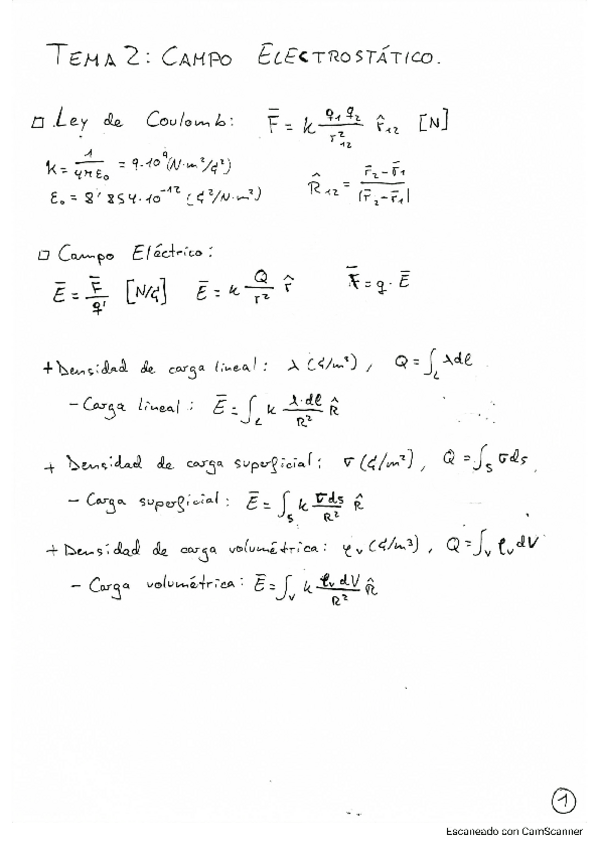 TEMA 2: CAMPO ELECTROSTÁTICO.
□ Ley de Coulomb: F̅ = k q₁ q₂ / r₁₂² r̂₁₂ [N]
k = 1 / 4πε₀ = 9·10⁹ (N·m²/C²)
R̂₁₂ = r̅₂ - r̅₁ / |r̅₂ - r̅₁|
ε₀ = 8'854·10⁻¹² (C²/N·m²)
□ Campo Eléctrico:
E̅ = F̅ / q' [N/C] E̅ = k Q / r² r̂ F̅ = q · E̅
+ Densidad de carga lineal: λ (C/m²), Q = ∫_L λdl
- Carga lineal: E̅ = ∫_L k λ·dl / R² R̂
+ Densidad de carga superficial: σ (C/m²), Q = ∫_S σds
- Carga superficial: E̅ = ∫_S k σds / R² R̂
+ Densidad de carga volumétrica: ρᵥ (C/m³), Q = ∫_V ρᵥ dV
- Carga volumétrica: E̅ = ∫_V k ρᵥ dV / R² R̂
1
Escaneado con CamScanner